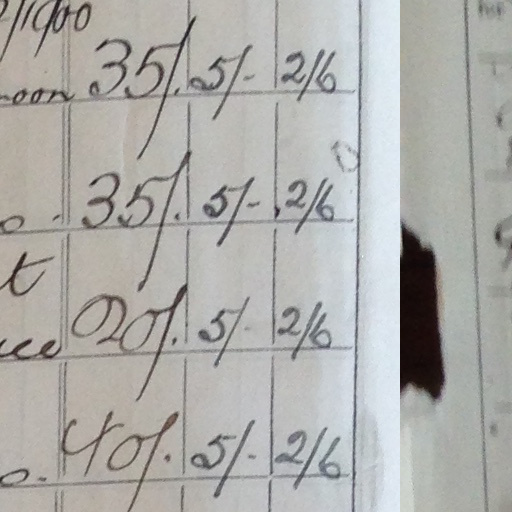 /1900
oon 35/. 5/- 2/6
o. 35/. 5/- 2/6
t
20/. 5/- 2/6
o. 40/. 5/- 2/6